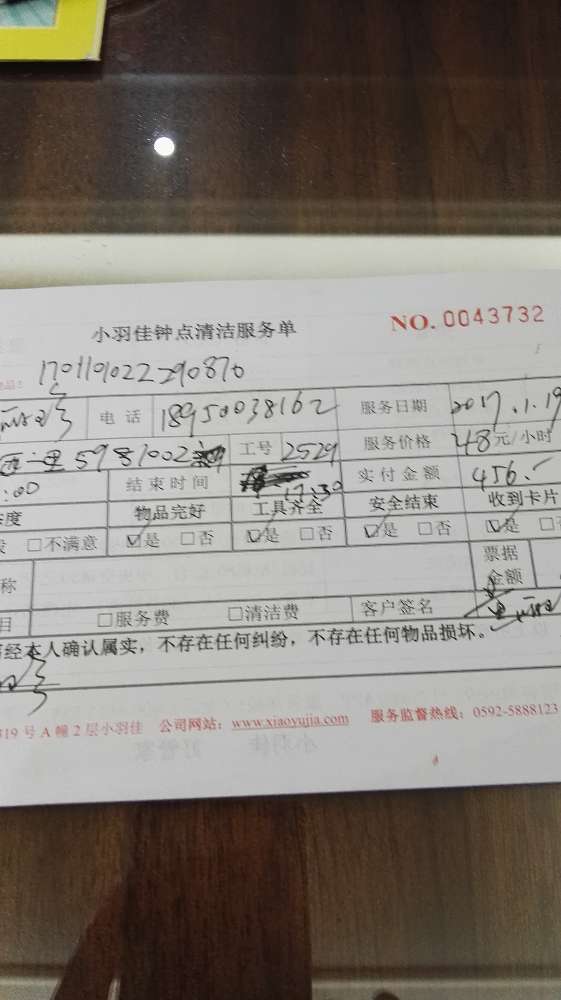 小羽佳钟点清洁服务单 NO. 0043732
170119022290870
电话 18950038162 服务日期 2017.1.19
5981002 工号 2529 服务价格 48元/小时
:00 结束时间 17:30 实付金额 456.
态度 物品完好 工具齐全 安全结束 收到卡片
□不满意 ☑是 □否 ☑是 □否 ☑是 □否 ☑是
称 票据金额
目 □服务费 □清洁费 客户签名
经本人确认属实，不存在任何纠纷，不存在任何物品损坏。
319号A幢2层小羽佳 公司网站：www.xiaoyujia.com 服务监督热线：0592-5888123